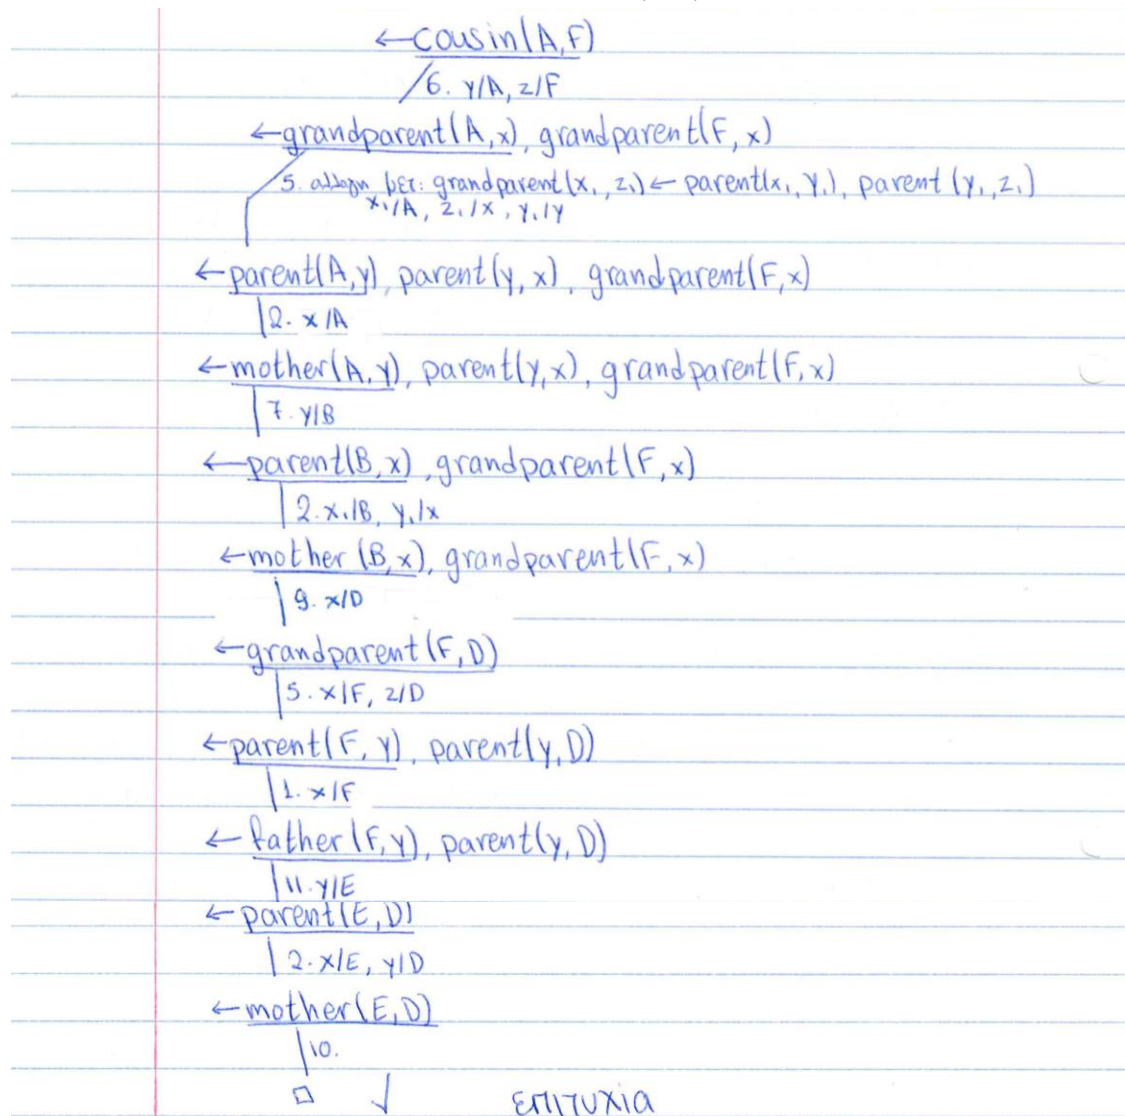 ←cousin(A,F)
6. y/A, z/F
←grandparent(A,x), grandparent(F,x)
5. αλλαγη μετ: grandparent(x₁, z₁) ← parent(x₁, y₁), parent (y₁, z₁)
x₁/A, z₁/x, y₁/y
←parent(A,y), parent(y,x), grandparent(F,x)
2. x/A
←mother(A,y), parent(y,x), grandparent(F,x)
7. y/B
←parent(B,x), grandparent(F,x)
2. x₁/B, y₁/x
←mother (B,x), grandparent(F,x)
9. x/D
←grandparent(F,D)
5. x/F, z/D
←parent(F,y), parent(y,D)
1. x/F
←father(F,y), parent(y,D)
11. y/E
←parent(E,D)
2. x/E, y/D
←mother(E,D)
10.
□ √ επιτυχια